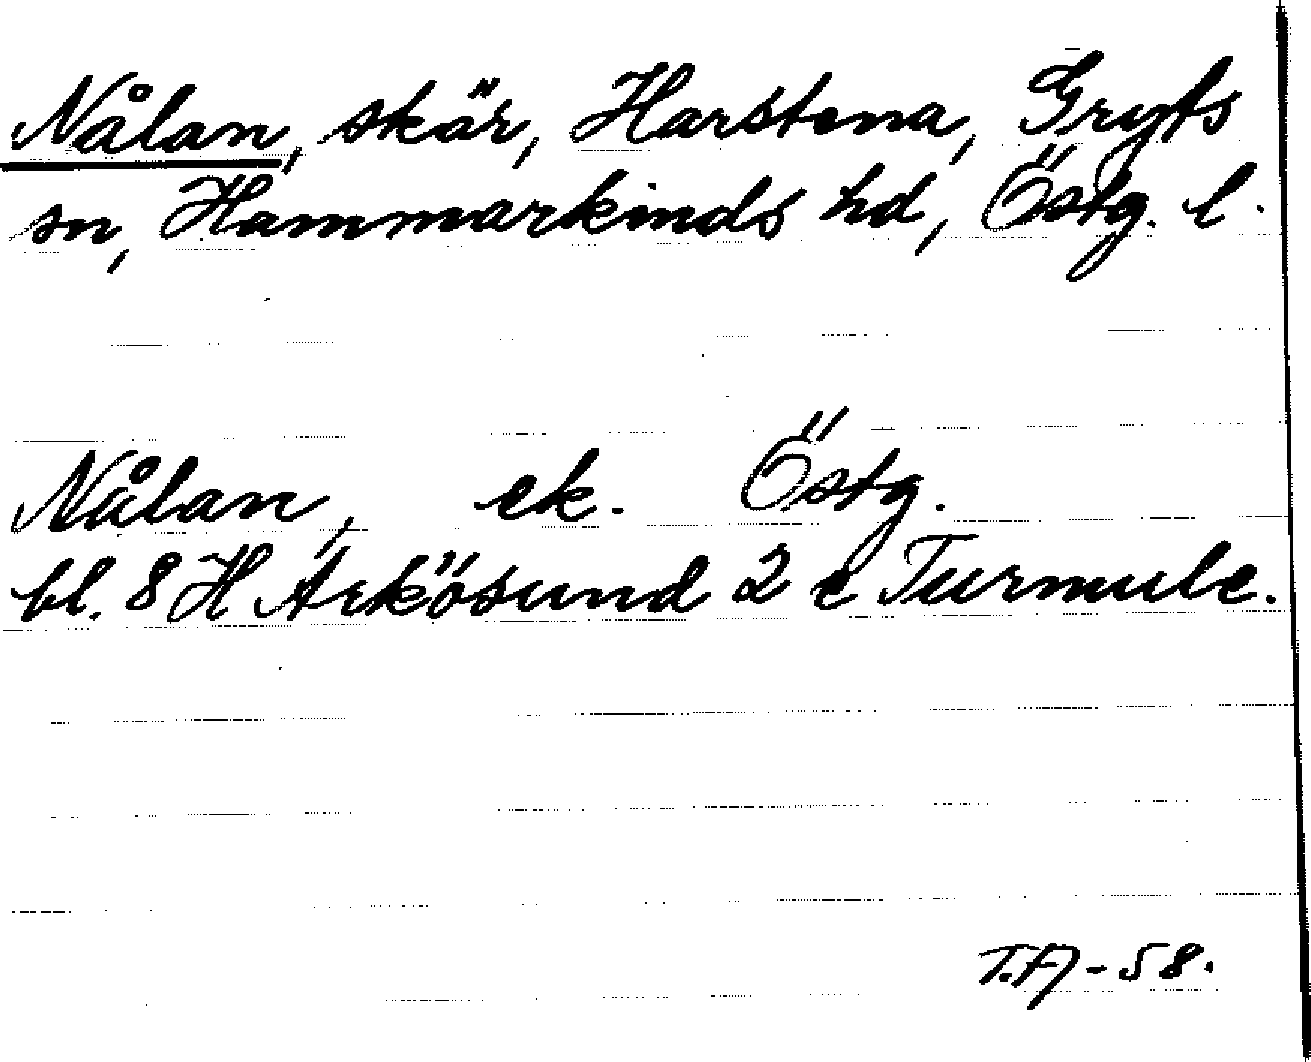 Nålan, skär, Harstena, Gryts
sn, Hammarkinds hd, Östg. l.
Nålan, ek. Östg.
bl. 8 H Arkösund 2 c Turmule.
T.A-58.